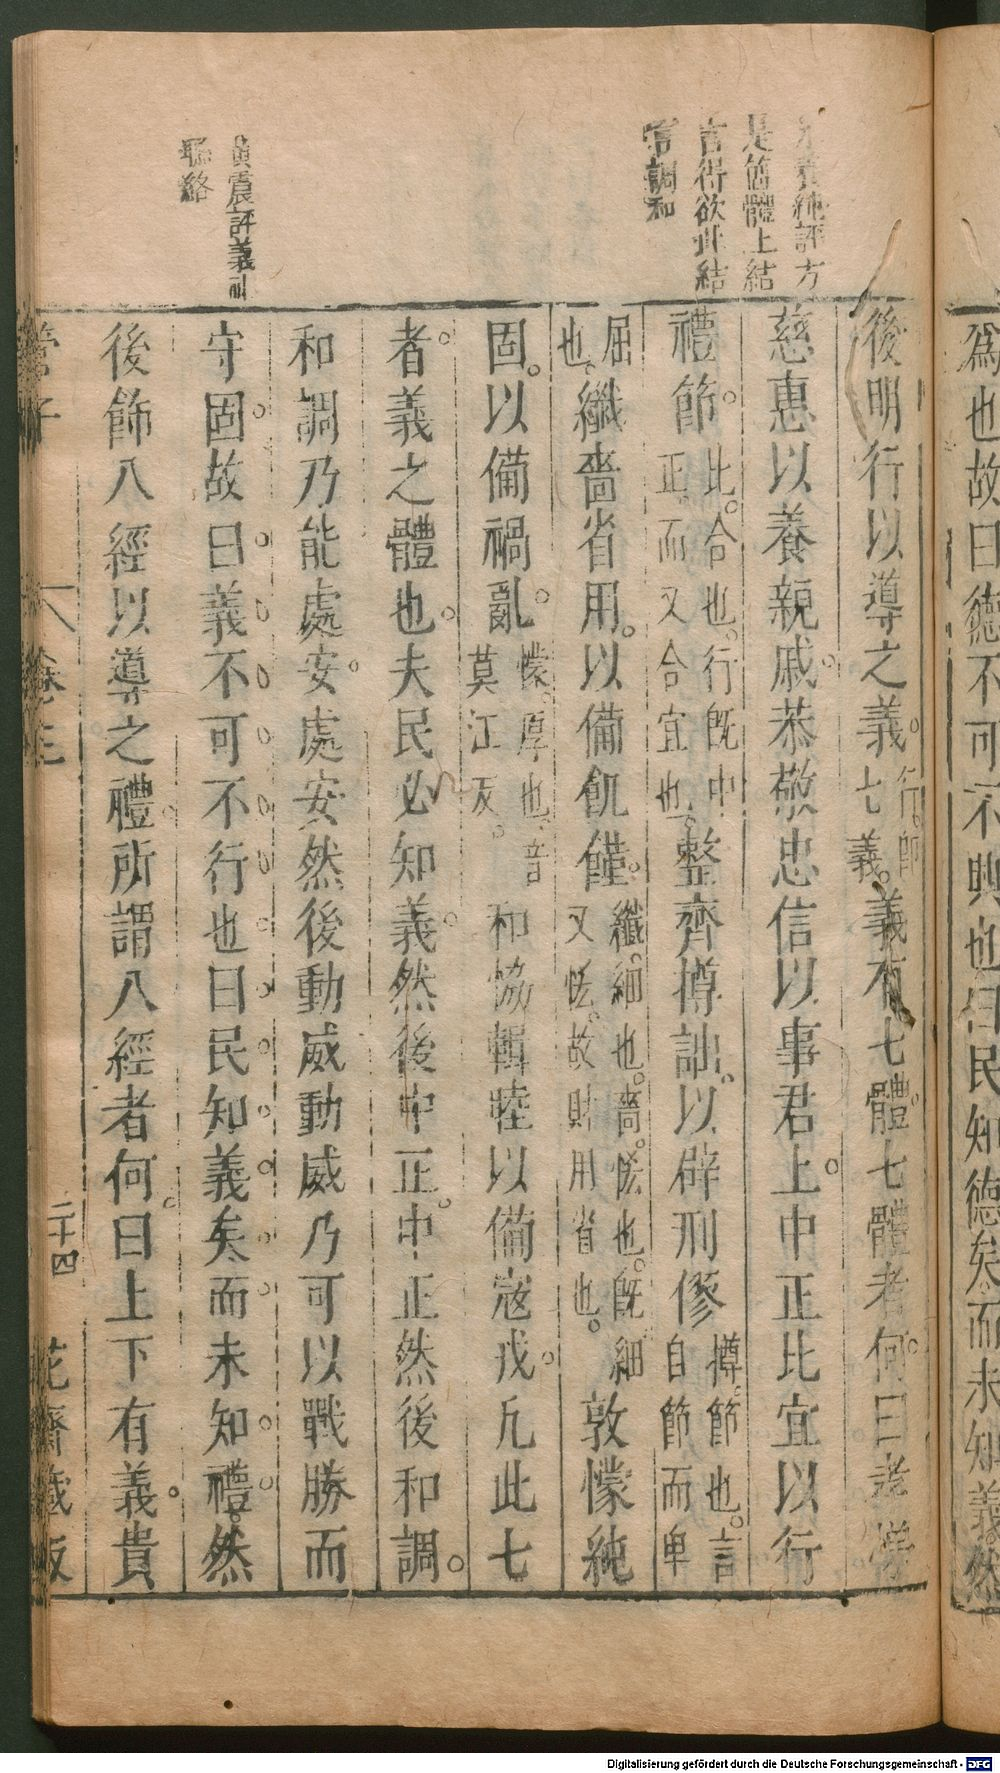 爲也故曰德不可不興也曰民知德矣而未知義然
朱養純評方
是箇體上結
言得欲此結
宮調和
黃震評義礼
聯絡
後明行以導之義。行。卽七義。義有七體。七體者何。曰孝悌
慈惠以養親戚。恭敬忠信以事君上。中正比宜以行
禮節。比。合也。行旣中正而又合宜也。整齊撙詘。以辟刑僇撙。節也。言自節而卑
屈也。纖嗇省用。以備飢饉。纖。細也。嗇。恡也。旣細又恡。故財用省也。敦懞純
固。以備禍亂。懞。厚也。音莫江反。和恊輯睦以備寇戎。凢此七
者。義之體也。夫民必知義。然後中正。中正然後和調。
和調乃能處安。處安然後動威動威乃可以戰勝而
守固。故曰。義不可不行也。曰。民知義矣。而未知禮。然
後飾八經以導之禮。所謂八經者何。曰上下有義。貴
管子
八 卷三
二十四
花齋藏板
Digitalisierung gefördert durch die Deutsche Forschungsgemeinschaft - DFG